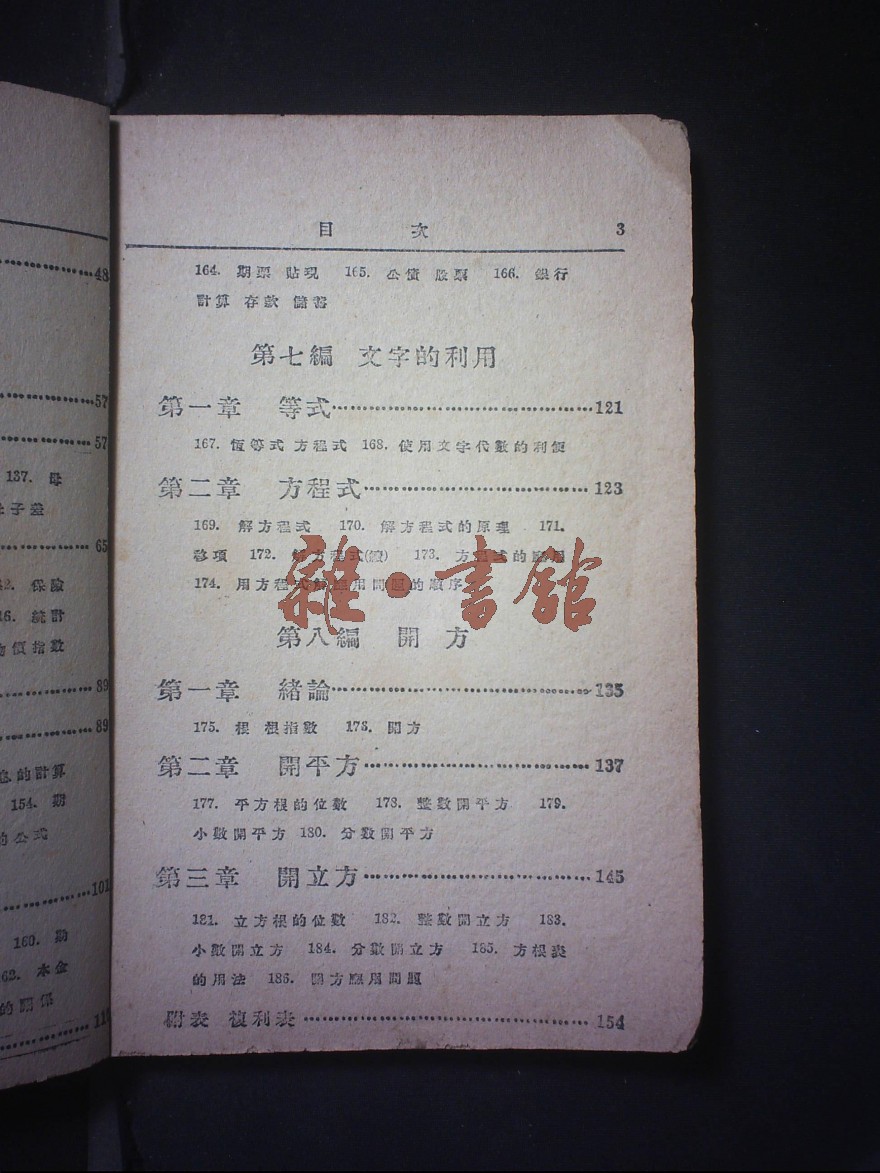 目 次 3
164. 期票 貼現 165. 公債 股票 166. 銀行
計算 存款 儲蓄
第七編 文字的利用
第一章 等式………………………………121
167. 恆等式 方程式 168. 使用文字代數的利便
第二章 方程式………………………………123
169. 解方程式 170. 解方程式的原理 171.
移項 172. 解方程式(續) 173. 方程式的應用
174. 用方程式解應用問題的順序
第八編 開方
第一章 緒論………………………………135
175. 根 根指數 176. 開方
第二章 開平方………………………………137
177. 平方根的位數 178. 整數開平方 179.
小數開平方 180. 分數開平方
第三章 開立方………………………………145
181. 立方根的位數 182. 整數開立方 183.
小數開立方 184. 分數開立方 185. 方根表
的用法 186. 開方應用問題
附表 複利表………………………………154
雜·書館
48
57
57
137. 母
子差
65
保險
統計
物價指數
89
89
息的計算
154. 期
的公式
101
160.
本金
的關係